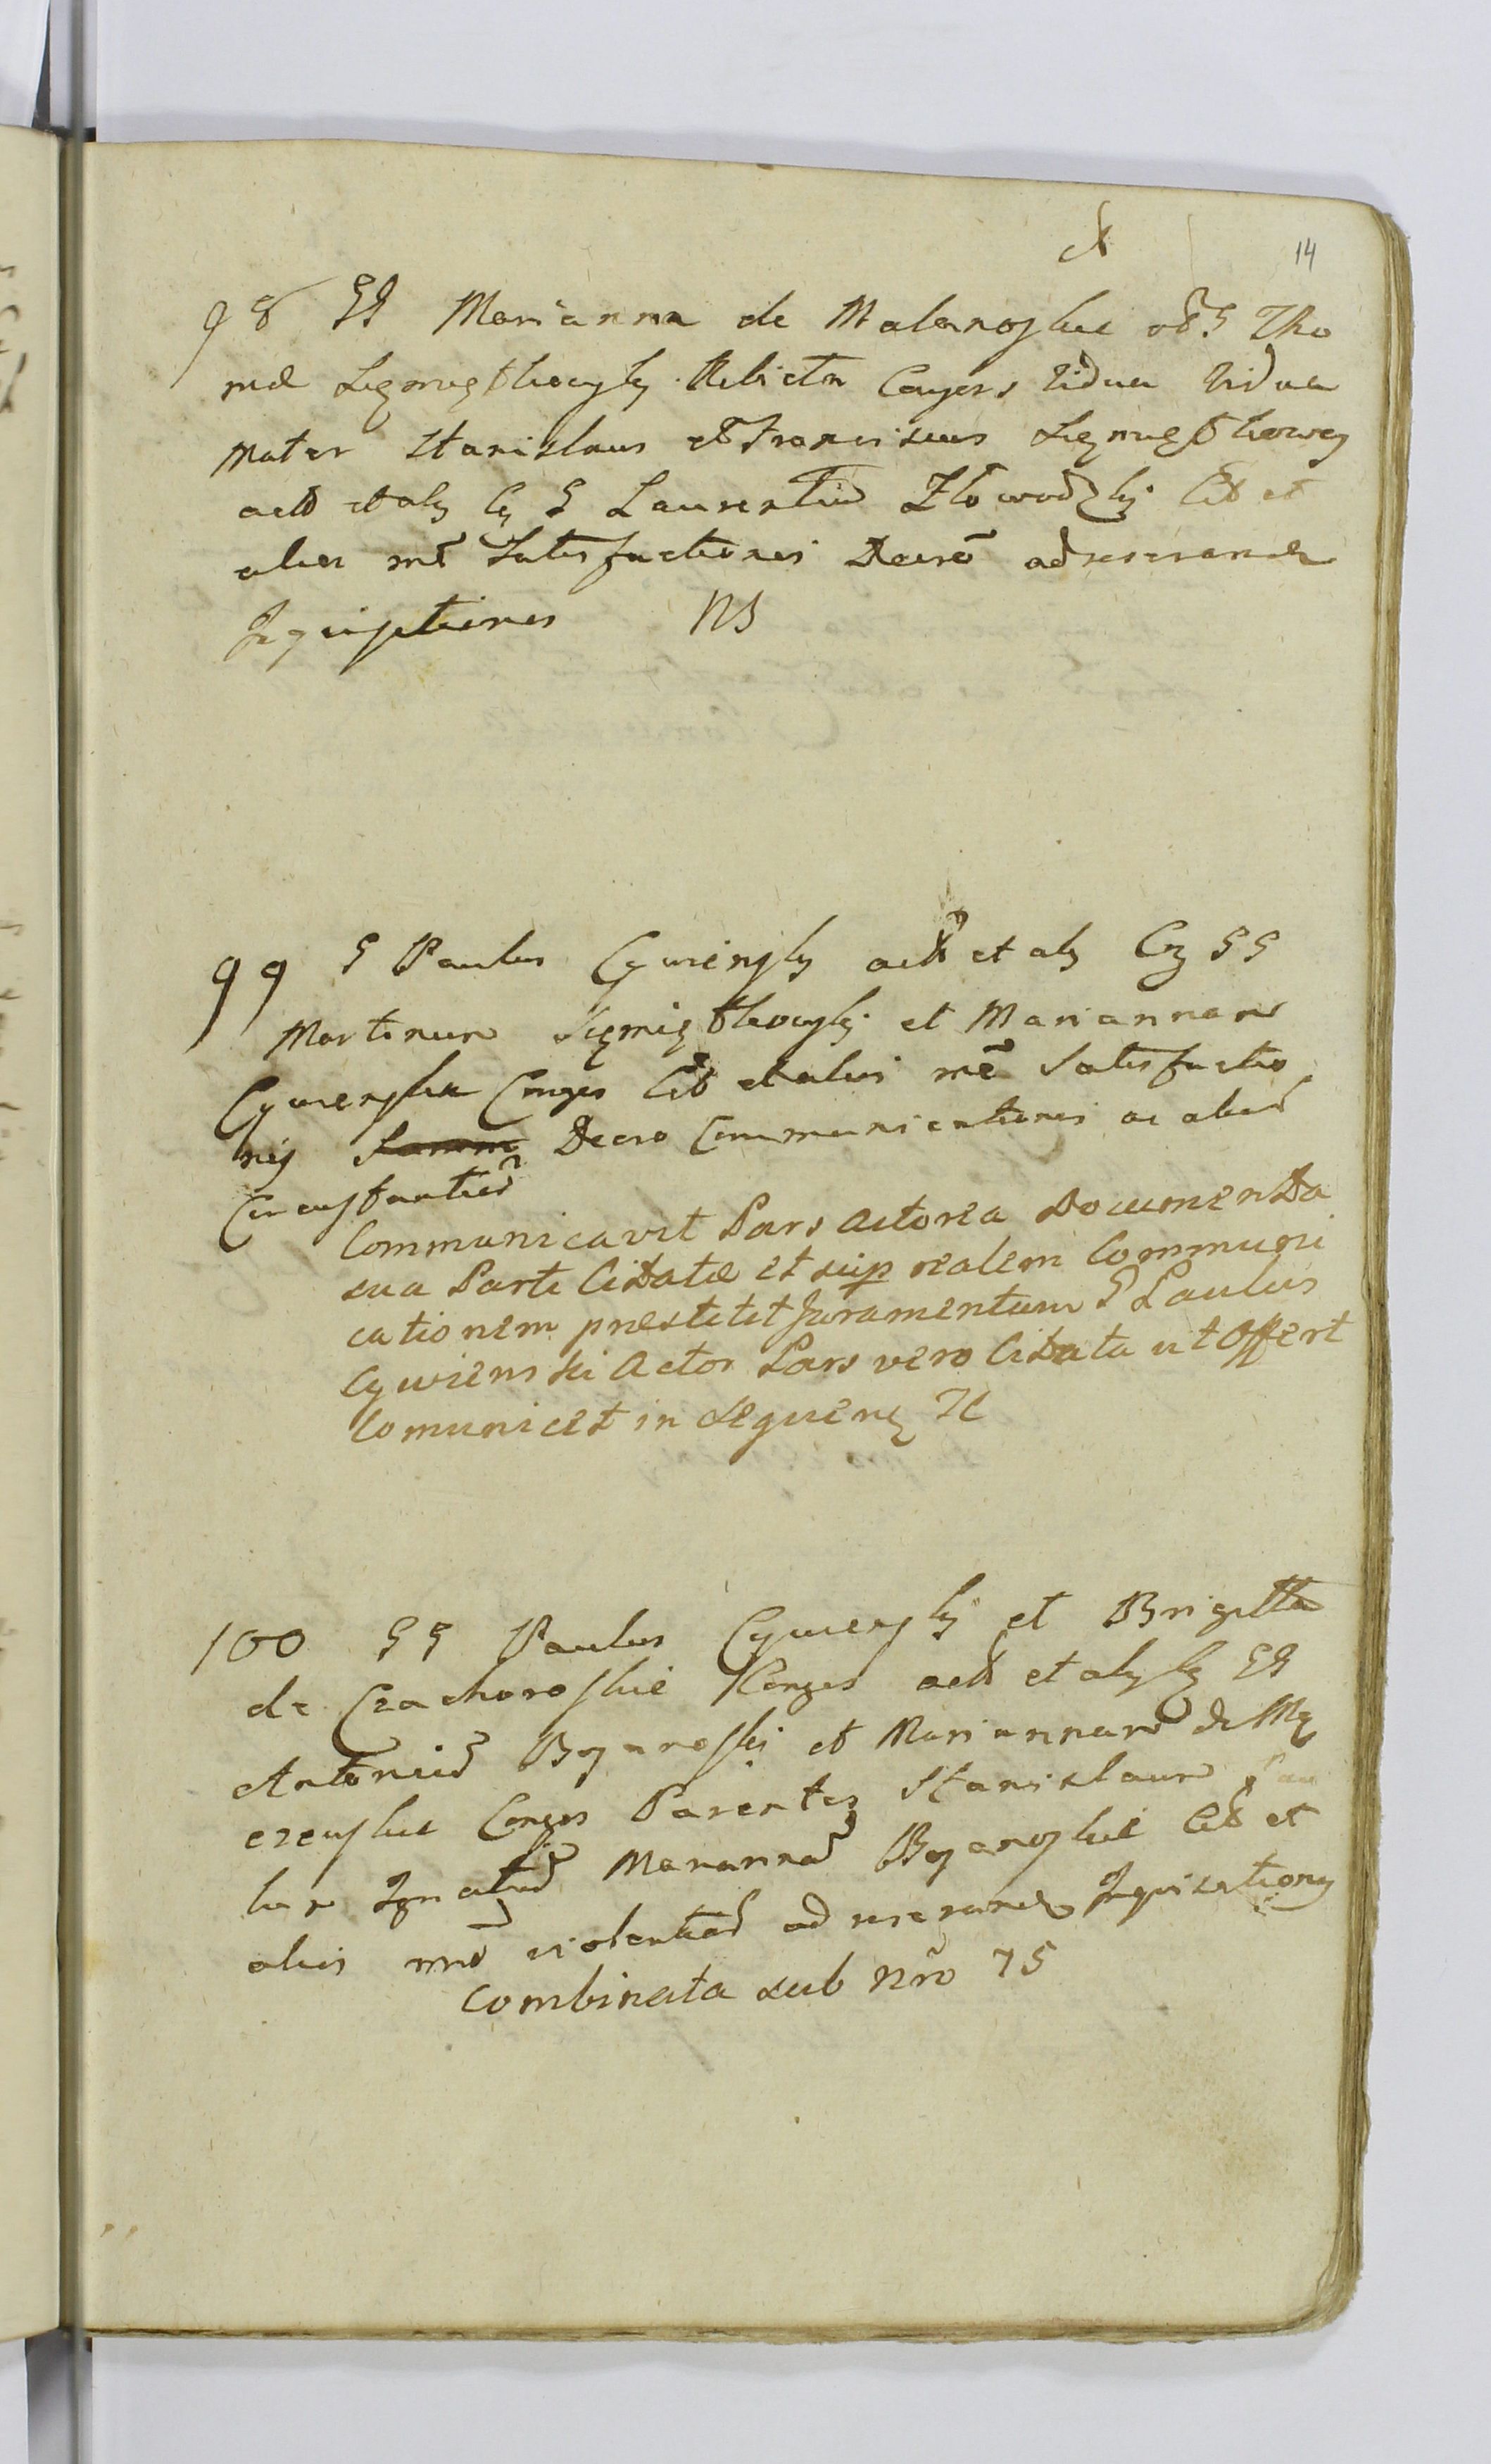 14
98 GG Marianna de Malanoskie olim G Tho
mæ Ligmięthowsky Relicta Conjers Vidua Vidua
Mater Stanislaus et Franciscus Ligmięthowscy
act et aly Cz G Laurentiū Zlowodzkį Cit et
alias mē Satisfactionis Decrō ad reserand
Inquisitiones NS
99 G Paulus Cywinsky act et aly Cz GG
Martinum Ligmięthowskį et Mariannam
Cywinskie Conges Cit et alias mē Satisfactio
nis Decro Communicationis ac aliud
Circumstantiā
Communicavit Pars Actorea Documenta
sua Parti Citatæ et sup realem Communi
cationem prestitit Juramentum G Paulus
Cywienski Actor Pars vero Citata ut Offert
Comunicet in Sequenz
100 GG Paulus Cywinsky et Brigitta
de Czachoroskie Conges act et aly Cz GG
Antoniū Bojanoskį et Mariannam de Mę
czenskie Conges Parentes Stanislaum Pau
lum Ignatiū Mariannā Bojanoskie Cit et
alias mē violentiā ad reserand Inquisitiony
Combinata sub Nrō 75